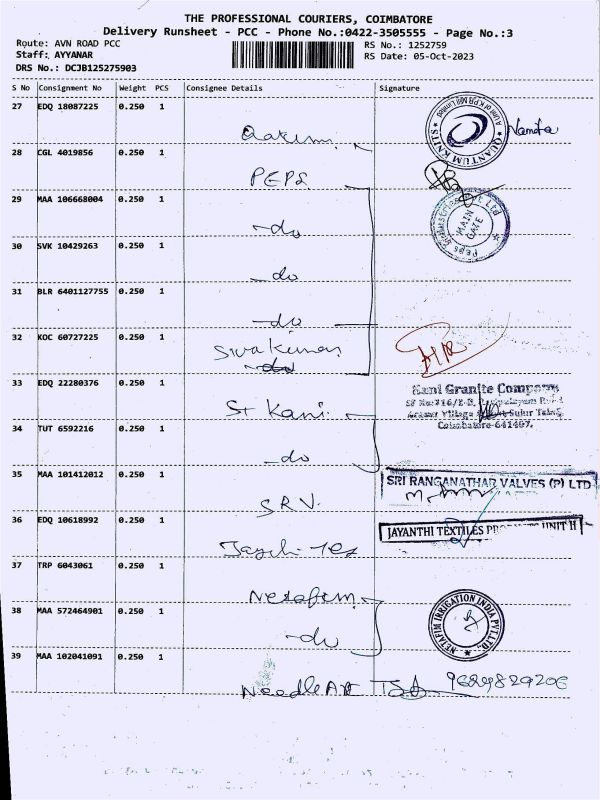 THE PROFESSIONAL COURIERS, COIMBATORE
Delivery Runsheet - PCC - Phone No.:0422-3505555 - Page No.:3
Route: AVN ROAD PCC
Staff: AYYANAR
DRS No.: DCJB125275903
RS No.: 1252759
RS Date: 05-Oct-2023
S No Consignment No Weight PCS Consignee Details Signature
27 EDQ 18087225 0.250 1
QUANTUM KNITS
Namita
28 CGL 4019856 0.250 1
PEPS
29 MAA 106668004 0.250 1
-do
MAIN GATE
30 SVK 10429263 0.250 1
-do
31 BLR 6401127755 0.250 1
-do
32 KOC 60727225 0.250 1
Sivakumar
-do
33 EDQ 22280376 0.250 1
St Kani
Kani Granite Company
Coimbatore-641407.
34 TUT 6592216 0.250 1
-do
35 MAA 101412012 0.250 1
SRV
SRI RANGANATHAR VALVES (P) LTD
36 EDQ 10618992 0.250 1
JAYANTHI TEXTILES UNIT II
37 TRP 6043061 0.250 1
Netafim
38 MAA 572464901 0.250 1
-do
NETAFIM IRRIGATION INDIA PVT.LTD.
39 MAA 102041091 0.250 1
Needle Art